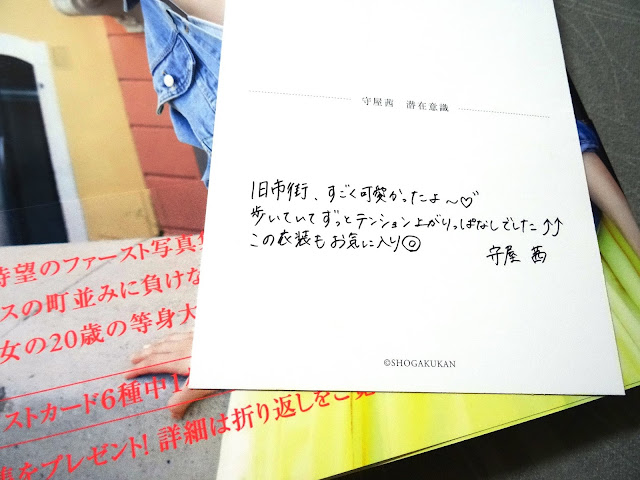 守屋茜 潜在意識
旧市街、すごく可愛かったよ〜♡
歩いていてずっとテンション上がりっぱなしでした↑↑
この衣装もお気に入り◎
守屋 茜
©SHOGAKUKAN
待望のファースト写真集
スの町並みに負けな
女の20歳の等身大
ストカード6種中1
をプレゼント! 詳細は折り返しをご覧